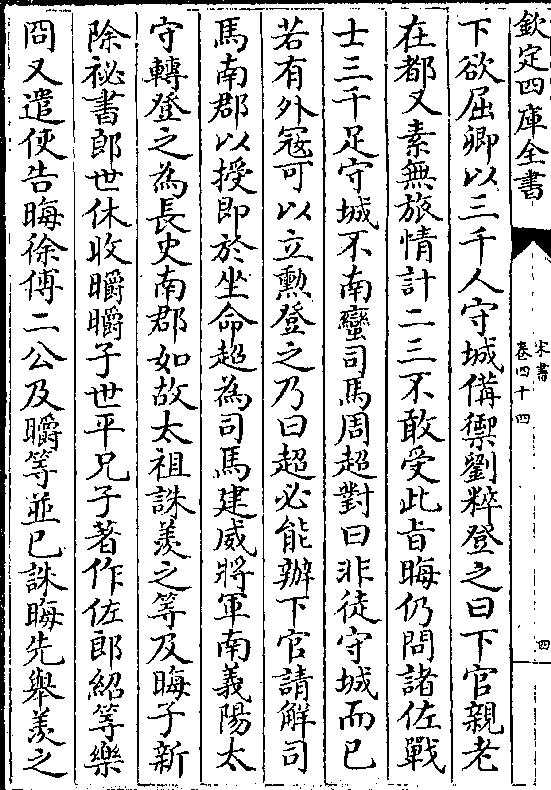 欽定四庫全書
宋書
卷四十四
四
下欲屈卿以三千人守城偹禦劉粹登之曰下官親老
在都又素無旅情計二三不敢受此旨晦仍問諸佐戰
士三千足守城不南蠻司馬周超對曰非徒守城而已
若有外寇可以立勲登之乃曰超必能辦下官請解司
馬南郡以授即於坐命超為司馬建威將軍南義陽太
守轉登之為長史南郡如故太祖誅羨之等及晦子新
除祕書郎世休收㬭㬭子世平兄子著作佐郎紹等樂
冏又遣使告晦徐傅二公及㬭等並已誅晦先舉羨之